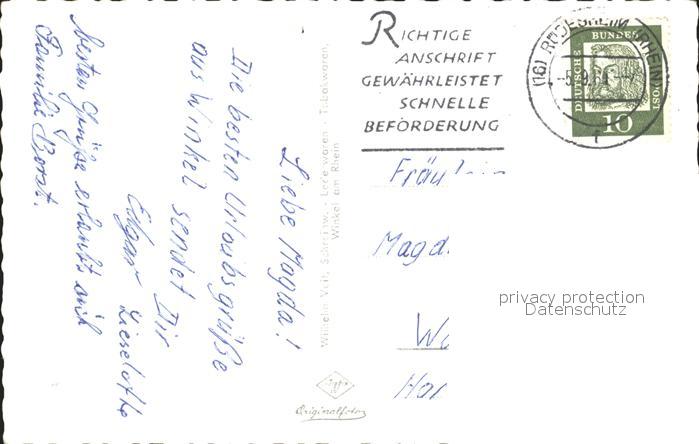 Liebe Magda!
Die besten Urlaubsgrüße
aus Winkel sendet Dir
Edgar Lieselotte
besten Grüße erlaubt sich
Familie Borst.
Wilhelm Veit, Schreibw. - Lederwaren - Tabakwaren,
Winkel am Rhein
Originalfotos
RICHTIGE
ANSCHRIFT
GEWÄHRLEISTET
SCHNELLE
BEFÖRDERUNG
(16) RÜDESHEIM (RHEIN)
DEUTSCHE
BUNDES
POST
10
Fräulein
Magd
privacy protection
Datenschutz